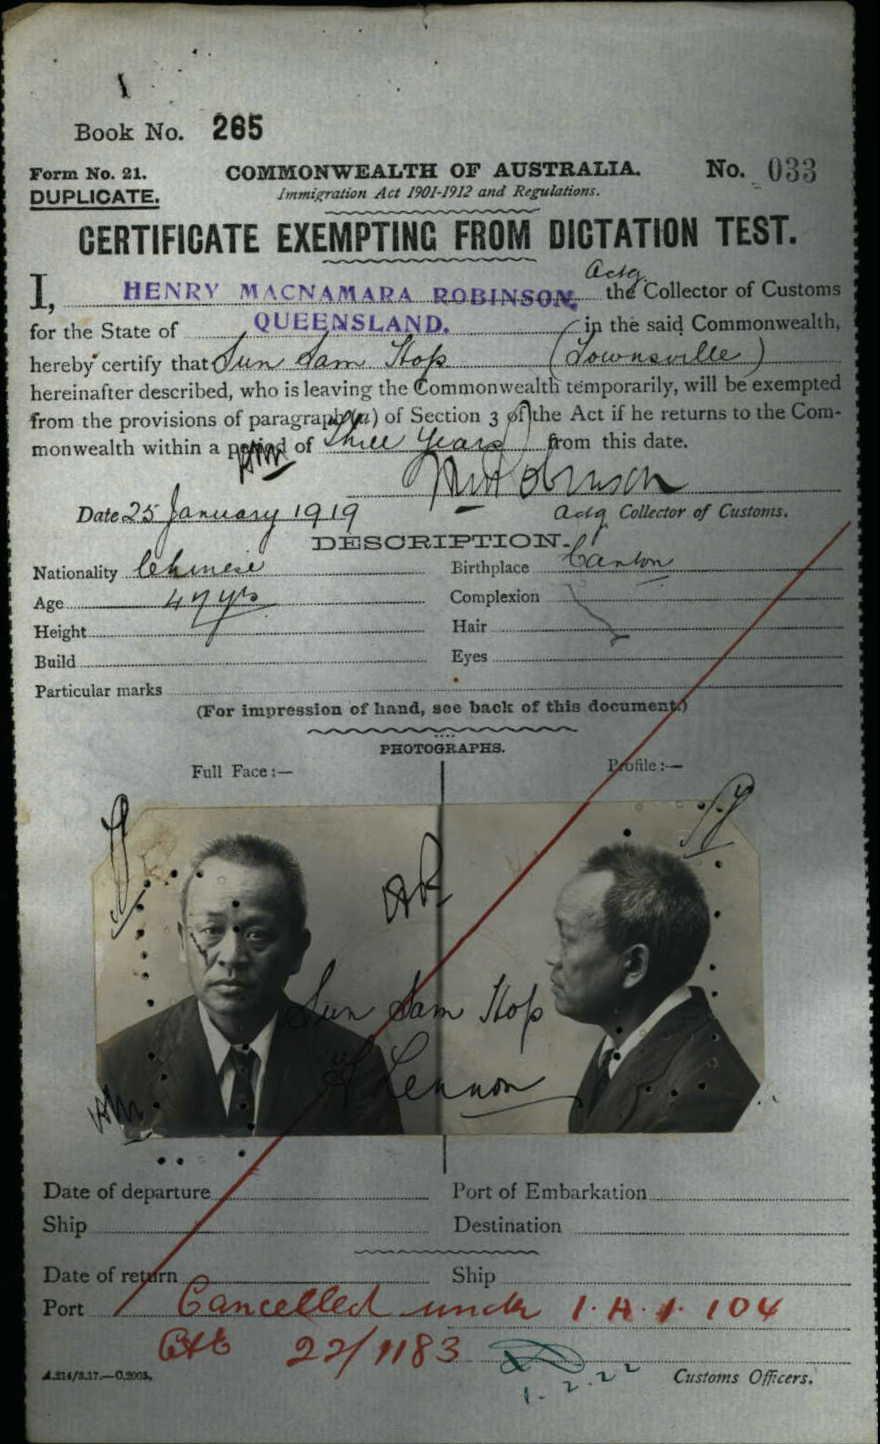 Book No. 265
Form No. 21. COMMONWEALTH OF AUSTRALIA. No. 033
DUPLICATE. Immigration Act 1901-1912 and Regulations.
CERTIFICATE EXEMPTING FROM DICTATION TEST.
Actg
I, HENRY MACNAMARA ROBINSON, the Collector of Customs
for the State of QUEENSLAND. in the said Commonwealth,
hereby certify that Sun Sam Hop (Townsville)
hereinafter described, who is leaving the Commonwealth temporarily, will be exempted
from the provisions of paragraph (a) of Section 3 of the Act if he returns to the Com-
monwealth within a period of Three Years from this date.
HM Robinson
Date 25 January 1919 Actg Collector of Customs.
DESCRIPTION.
Nationality Chinese Birthplace Canton
Age 47 yrs Complexion
Height Hair
Build Eyes
Particular marks
(For impression of hand, see back of this document.)
PHOTOGRAPHS.
Full Face:— Profile:—
Sun Sam Hop
Lennon
Date of departure Port of Embarkation
Ship Destination
Date of return Ship
Port Cancelled under 104
22/1183
1.2.22 Customs Officers.
A.214/3.17.—C.2005.